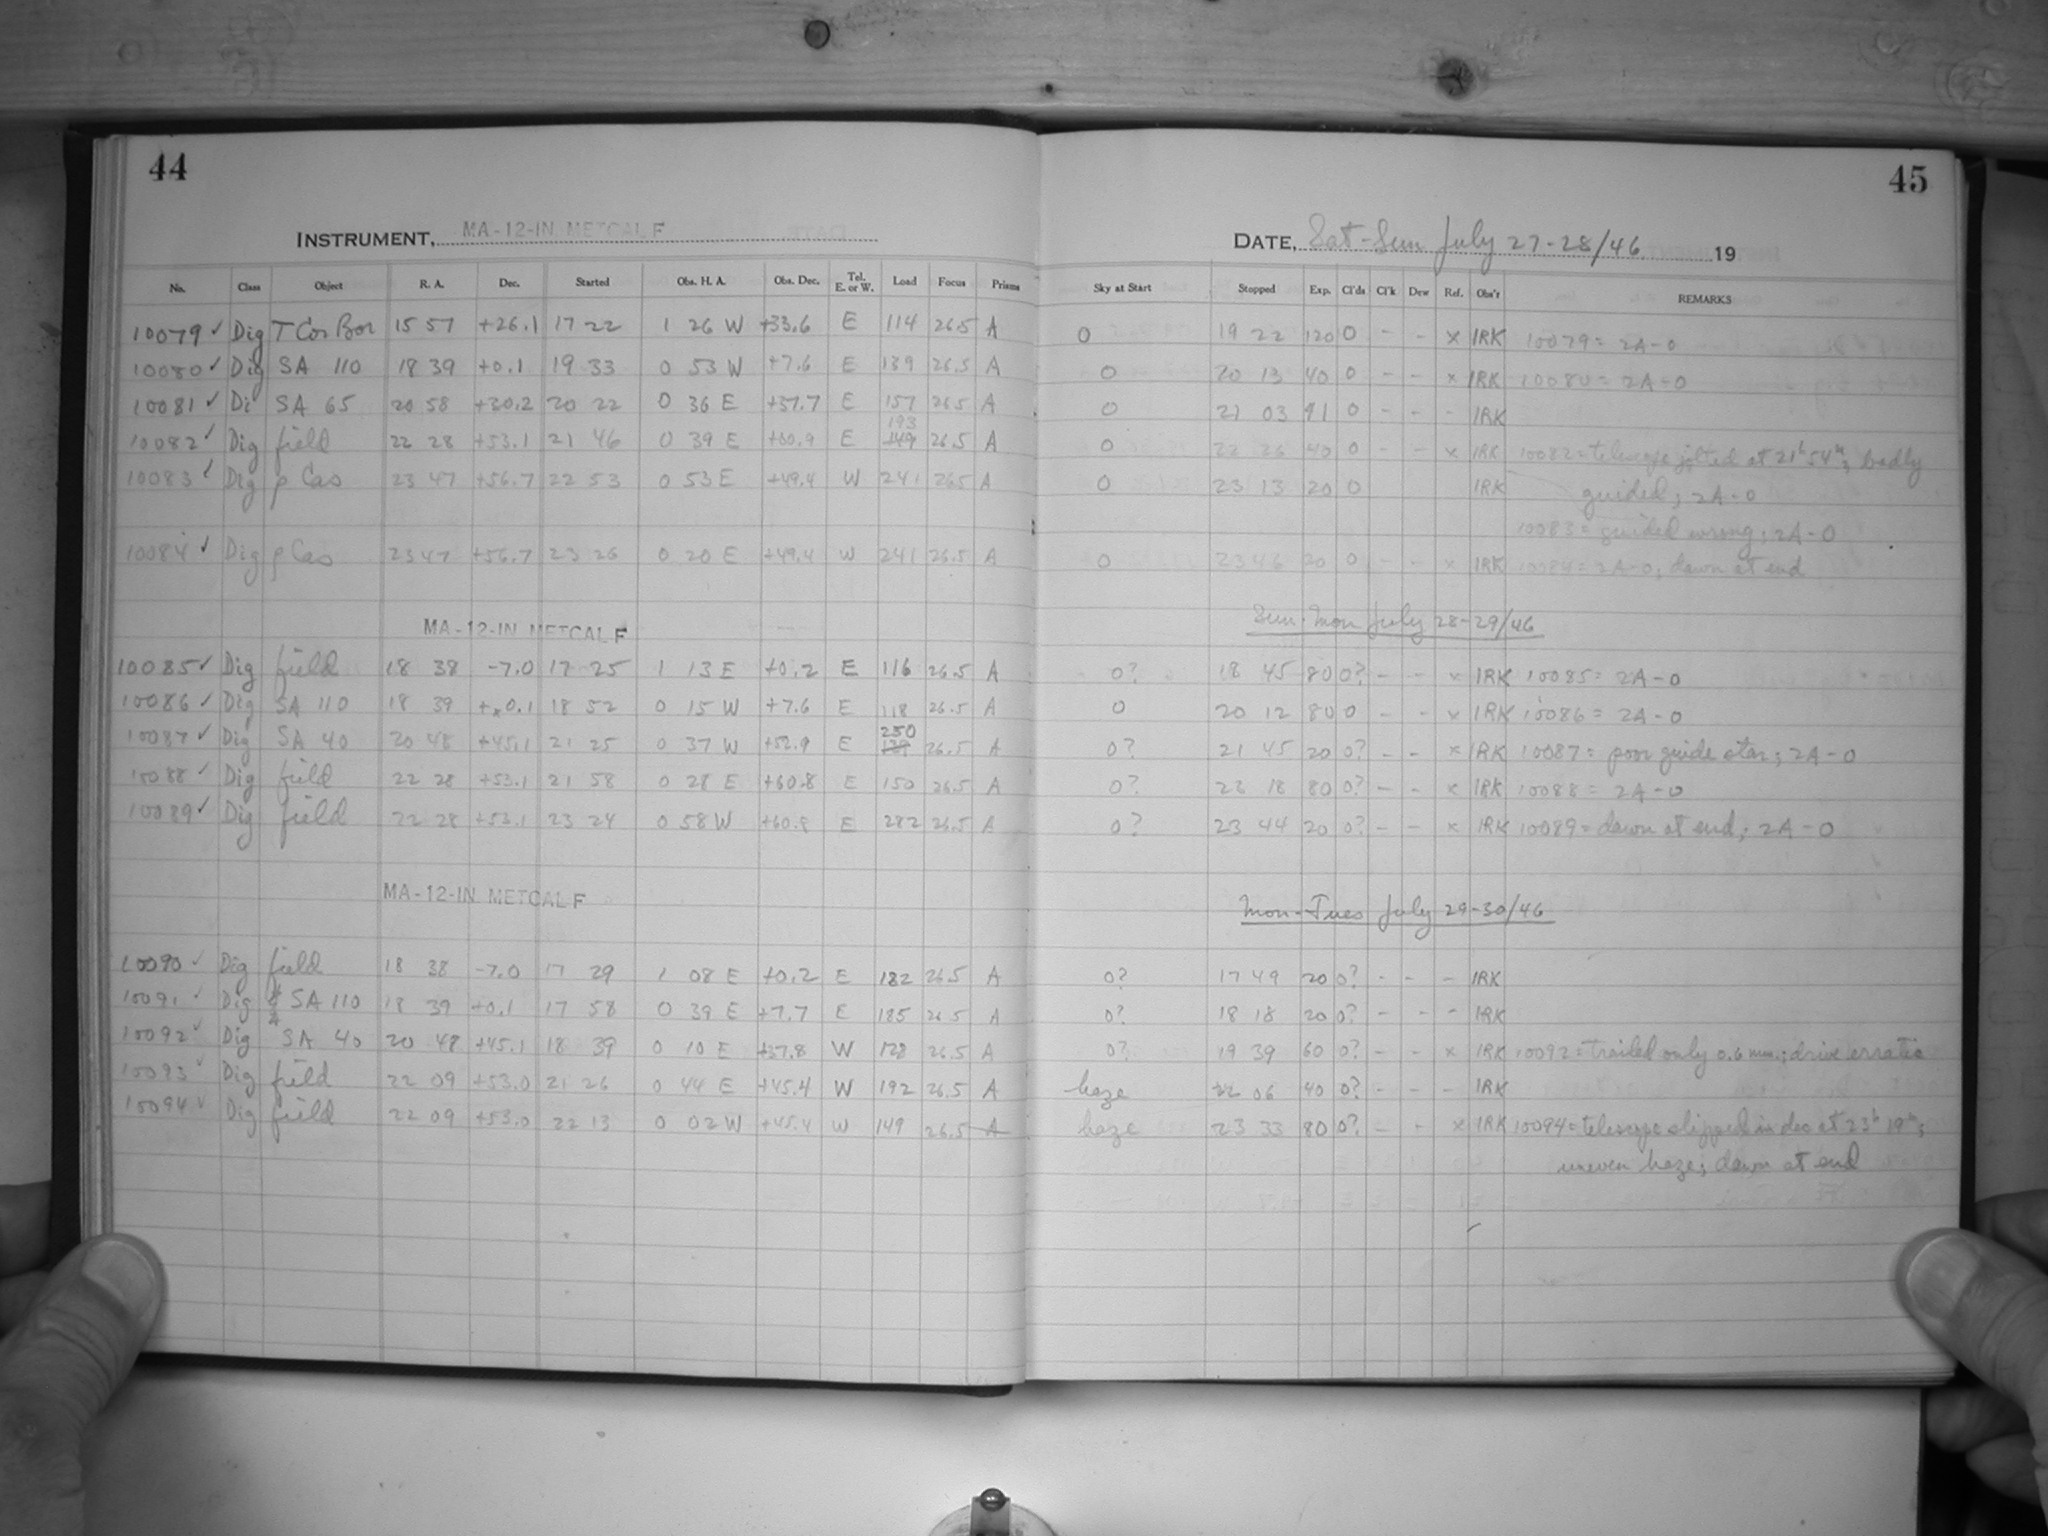 44
45
INSTRUMENT, MA-12-IN. METCALF
DATE, Sat-Sun July 27-28/46 19
No. Class Object R. A. Dec. Started Obs. H. A. Obs. Dec. Tel. E. or W. Load Focus Prisms Sky at Start Stopped Exp. Cl'ds Cl'k Dew Ref. Obs'r REMARKS
10079 ✓ Dig T Cor Bor 15 57 +26.1 17 22 1 26 W +33.6 E 114 26.5 A 0 19 22 120 0 - - x IRK 10079 = 2A-0
10080 ✓ Dig SA 110 18 39 +0.1 19 33 0 53 W +7.6 E 139 26.5 A 0 20 13 40 0 - - x IRK 10080 = 2A-0
10081 ✓ Di SA 65 20 58 +30.2 20 22 0 36 E +37.7 E 157 26.5 A 0 21 03 41 0 - - - IRK
193
10082 ✓ Dig field 22 28 +53.1 21 46 0 39 E +60.9 E 149 26.5 A 0 22 26 40 0 - - x IRK 10082 = telescope jolted at 21h 54m; badly
10083 ✓ Dig ρ Cas 23 47 +56.7 22 53 0 53 E +49.4 W 241 26.5 A 0 23 13 20 0 IRK guided; 2A-0
10083 = guided wrong; 2A-0
10084 ✓ Dig ρ Cas 23 47 +56.7 23 26 0 20 E +49.4 W 241 26.5 A 0 23 46 20 0 - - x IRK 10084 = 2A-0; dawn at end
MA-12-IN. METCALF
Sun-Mon July 28-29/46
10085 ✓ Dig field 18 38 -7.0 17 25 1 13 E +0.2 E 116 26.5 A 0? 18 45 80 0? - - x IRK 10085 = 2A-0
10086 ✓ Dig SA 110 18 39 +0.1 18 52 0 15 W +7.6 E 118 26.5 A 0 20 12 80 0 - - x IRK 10086 = 2A-0
250
10087 ✓ Dig SA 40 20 48 +45.1 21 25 0 37 W +52.9 E 26.5 A 0? 21 45 20 0? - - x IRK 10087 = poor guide star; 2A-0
10088 ✓ Dig field 22 28 +53.1 21 58 0 28 E +60.8 E 150 26.5 A 0? 23 18 80 0? - - x IRK 10088 = 2A-0
10089 ✓ Dig field 22 28 +53.1 23 24 0 58 W +60.8 E 282 26.5 A 0? 23 44 20 0? - - x IRK 10089 = dawn at end; 2A-0
MA-12-IN. METCALF
Mon-Tues July 29-30/46
10090 ✓ Dig field 18 38 -7.0 17 29 1 08 E +0.2 E 182 26.5 A 0? 17 49 20 0? - - - IRK
10091 ✓ Dig SA 110 18 39 +0.1 17 58 0 39 E +7.7 E 185 26.5 A 0? 18 18 20 0? - - - IRK
10092 ✓ Dig SA 40 20 48 +45.1 18 39 0 10 E +37.8 W 128 26.5 A 0? 19 39 60 0? - - x IRK 10092 = trailed only 0.6 mm.; drive erratic
10093 ✓ Dig field 22 09 +53.0 21 26 0 44 E +45.4 W 192 26.5 A haze 22 06 40 0? - - - IRK
10094 ✓ Dig field 22 09 +53.0 22 13 0 02 W +45.4 W 149 26.5 A haze 23 33 80 0? - - x IRK 10094 = telescope slipped in dec at 23h 19m;
uneven haze; dawn at end